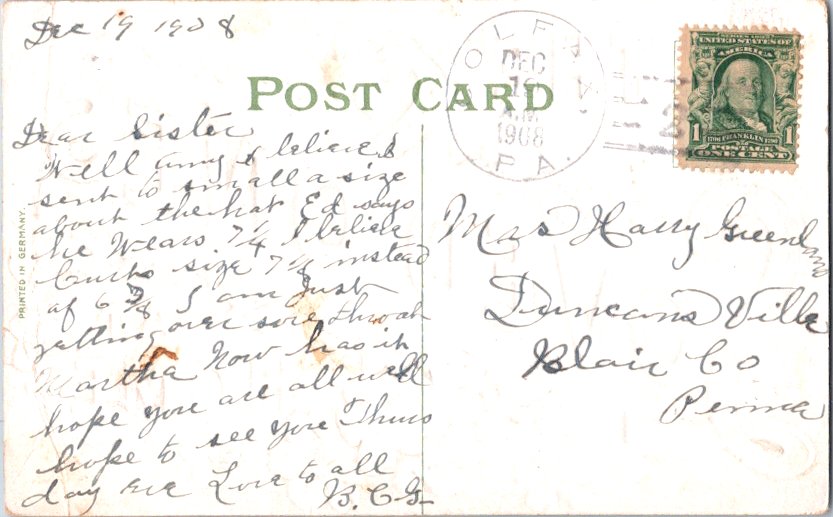 Dec 19 1908
POST CARD
Dear Sister
Well Amy I believe I
sent to small a size
about the hat Ed says
he Wears 7 1/4 I believe
Curts size 7 1/8 instead
of 6 7/8 I am Just
getting over sore throat
Martha Now has it
hope you are all well
hope to see you Thurs
day eve Love to all
B. C. G
PRINTED IN GERMANY.
OLF
PA.
DEC
19
A.M.
1908
2
SERIES 1902
UNITED STATES OF
AMERICA
1 1706 FRANKLIN 1790 1
POSTAGE
ONE CENT
Mrs Harry Greenland
Duncans Ville
Blair Co
Penna